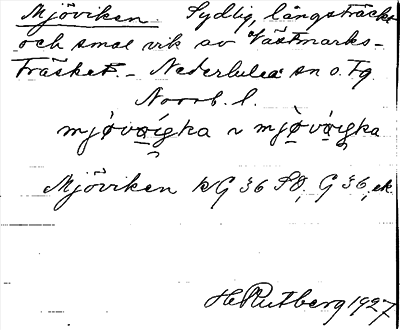 Mjöviken. Sydlig, långsträckt
och smal vik av Västmarks-
träsket. - Nederluleå sn o. Tg
Norrb. l.
mjövigka ~ mjövigka
Mjöviken kG 36 SO, G 36, ek.
H Rutberg 1927